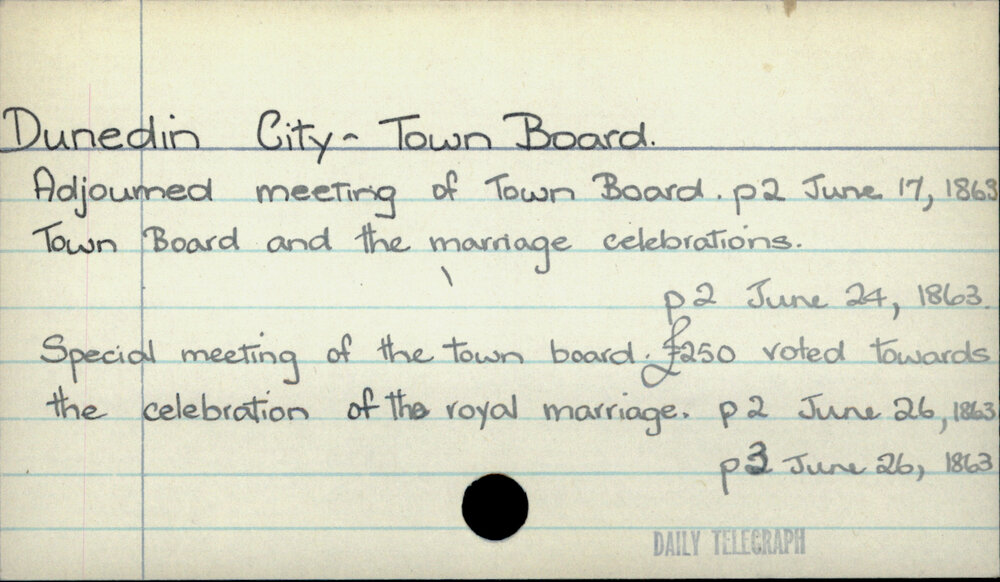 Dunedin City - Town Board.
Adjourned meeting of Town Board. p2 June 17, 1863
Town Board and the marriage celebrations.
p2 June 24, 1863.
Special meeting of the town board. £250 voted towards
the celebration of the royal marriage. p2 June 26, 1863
p3 June 26, 1863
DAILY TELEGRAPH